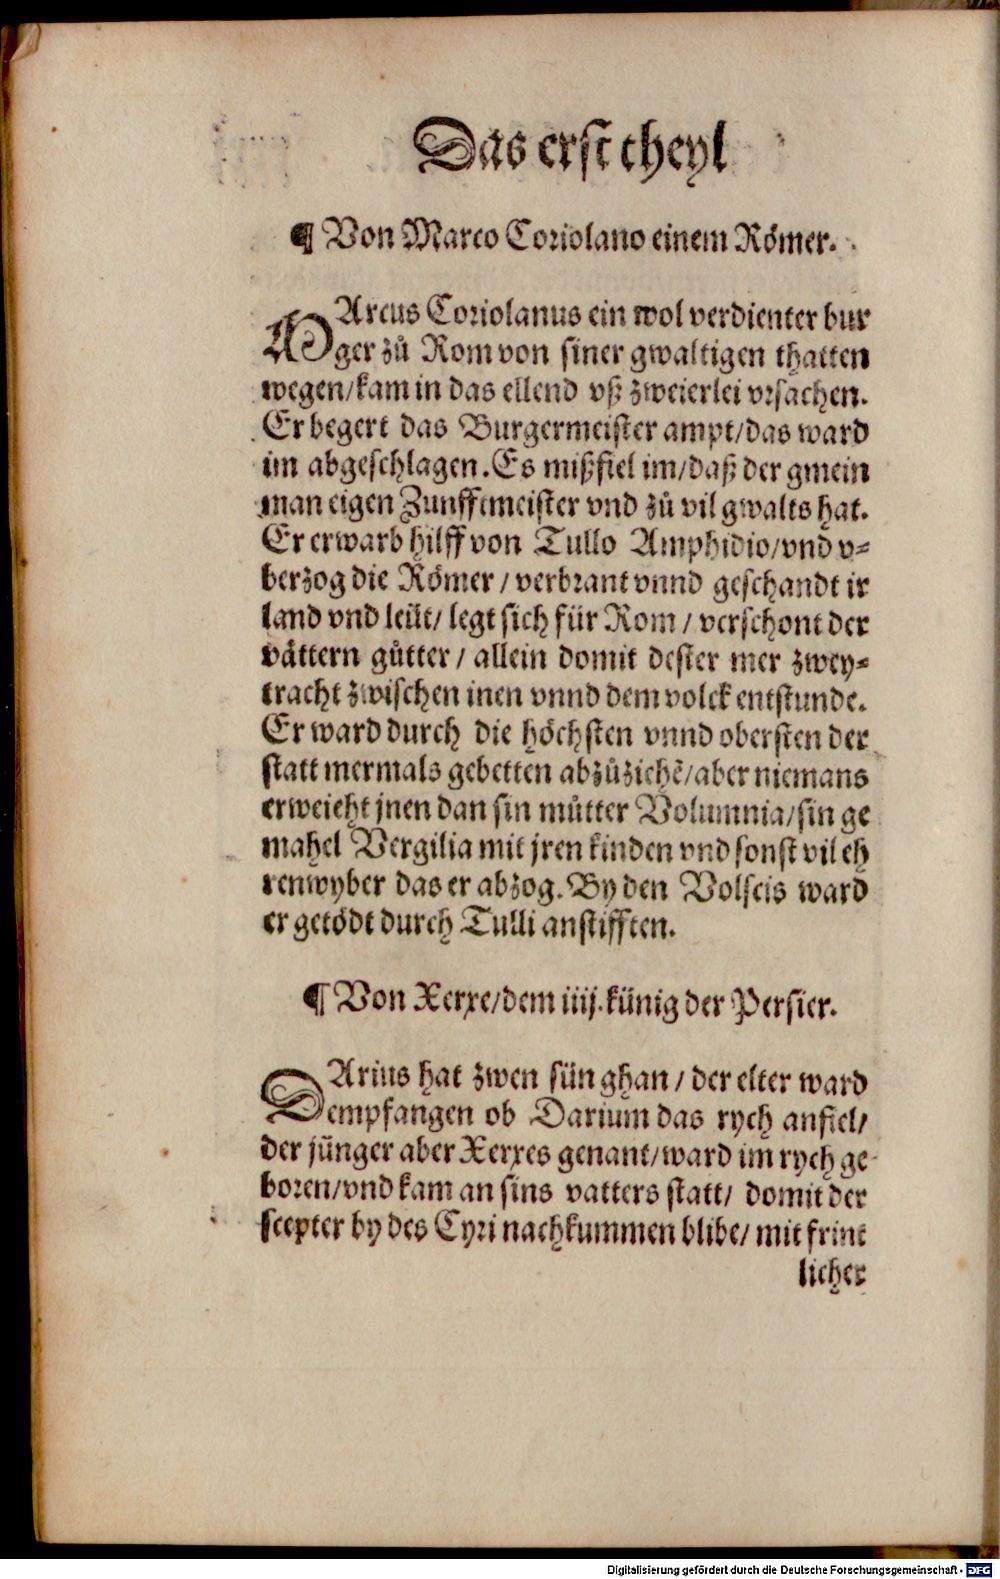 Das erst theyl
¶ Von Marco Coriolano einem Römer.
MArcus Coriolanus ein wol verdienter bur
ger zů Rom von siner gwaltigen thatten
wegen/kam in das ellend vß zweierlei vrsachen.
Er begert das Burgermeister ampt/das ward
im abgeschlagen. Es mißfiel im/daß der gmein
man eigen Zunfftmeister vnd zů vil gwalts hat.
Er erwarb hilff von Tullo Amphidio/vnd v⸗
berzog die Römer / verbrant vnnd geschandt ir
land vnd leüt/ legt sich für Rom / verschont der
vättern gütter / allein domit dester mer zwey⸗
tracht zwischen inen vnnd dem volck entstunde.
Er ward durch die höchsten vnnd obersten der
statt mermals gebetten abzůziehē/aber niemans
erweicht jnen dan sin můtter Volumnia/sin ge
mahel Vergilia mit jren kinden vnd sonst vil eh
renwyber das er abzog. By den Volscis ward
er getödt durch Tulli anstifften.
¶ Von Xerxe/dem iiij. künig der Persier.
DArius hat zwen sün ghan / der elter ward
empfangen ob Darium das rych anfiel/
der jünger aber Xerxes genant/ward im rych ge
boren/vnd kam an sins vatters statt/ domit der
scepter by des Cyri nachkummen blibe/ mit frint
licher
Digitalisierung gefördert durch die Deutsche Forschungsgemeinschaft - DFG